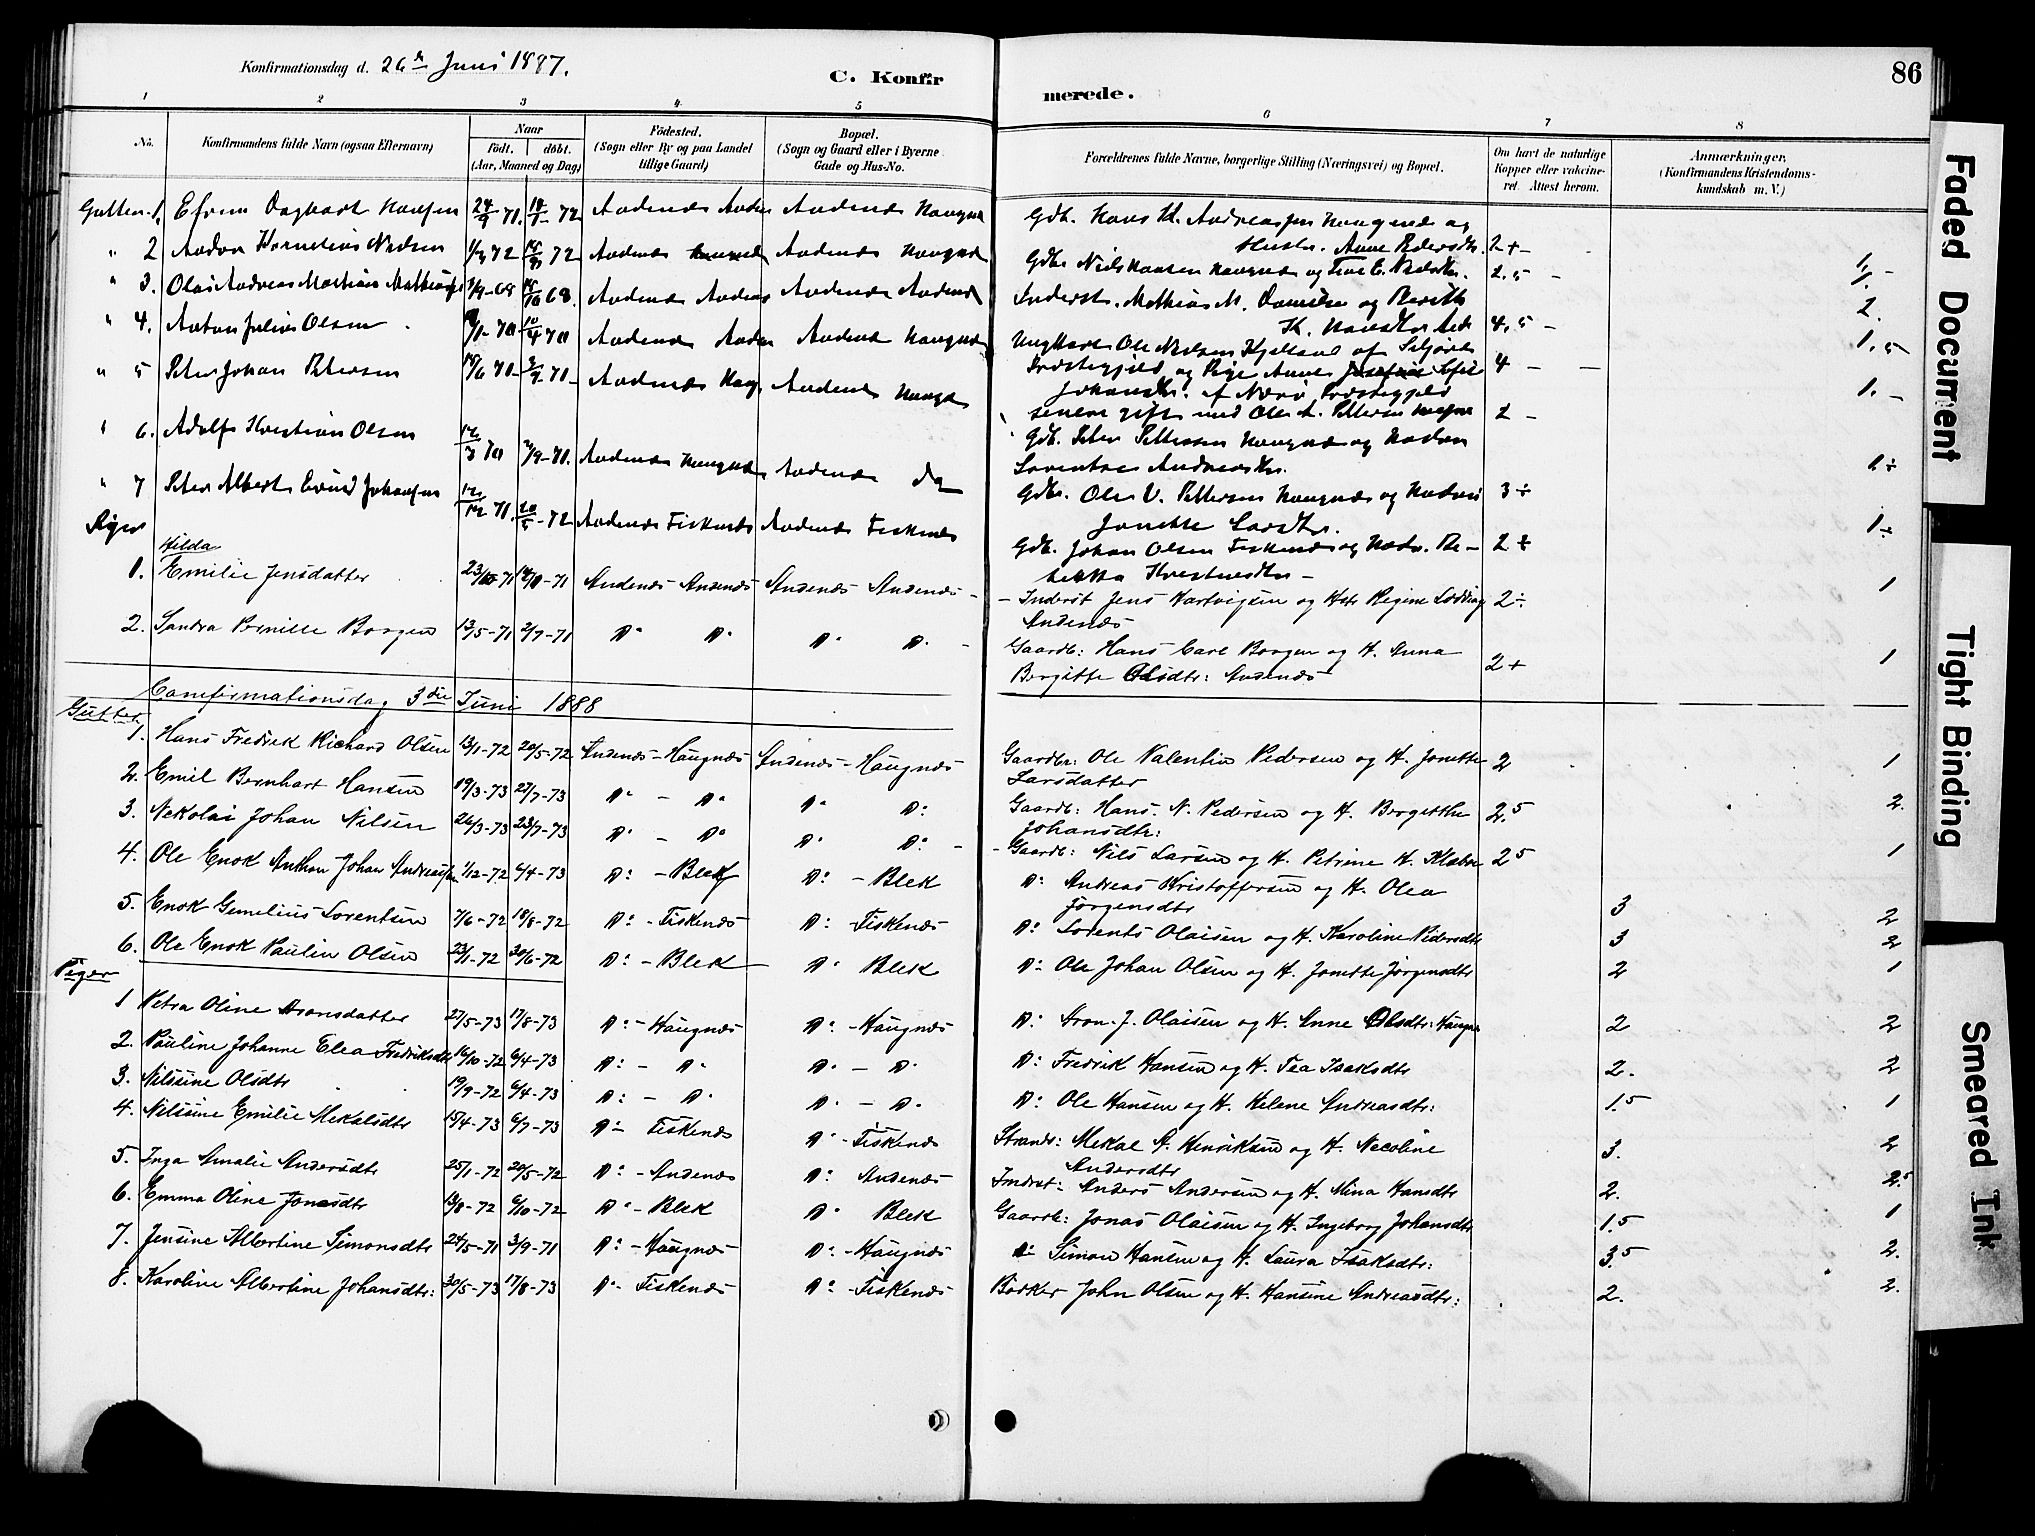 Konfirmationsdag d. 26de Juni 1887.
C. Konfirmerede.
86
1 2 3 4. 5 6 7 8
No. Konfirmandens fulde Navn (ogsaa Efternavn) Naar födt. döbt. (Aar, Maaned og Dag) Födested. (Sogn eller By og paa Landet tillige Gaard) Bopæl. (Sogn og Gaard eller i Byerne Gade og Hus-No. Forældrenes fulde Navne, borgerlige Stilling (Næringsvei) og Bopæl. Om havt de naturlige Kopper eller vakcineret. Attest herom. Anmærkninger. (Konfirmandens Kristendomskundskab m. V.)
Gutter. 1. Efrem Dagbart Hansen 71. 72 Andenæs Andenæs Haugnæs Gdb. Hans H. Andreassen Haugnæs og Hustr. Anne Pedersdtr. 2+
" 2 Andor Kornelius Nielsen 72 72 Andenæs Haugnæs Andenæs Haugnæs Gdb. Niels Hansen Haugnæs og 2.5 -
" 3. Olai Andreas Martinus Mathias 68 68. Andenæs Andenæs Andenæs Andenæs Inderst. Mathias M. Danielse og Berith K. Hansdtr 4,5 - 2.
" 4. Anton Julius Olsen 70 70 Andenæs Andenæs Haugnæs Ungkarl Ole Nielsen Kjelland af Præstegjeld og Pige Anne Johansdtr. af Nærö Præstegjeld senere gift med Ole A. Pettersen 4 - 1.5
" 5 Peter Johan Petersen 71 - 71 - Andenæs Haug Andenæs Haugn Gdb. Peter Pettersen Haugnæs og Lorentse Andreasdtr. 2 - 1. -
" 6. Adolf Kristian Olsen 70 71. Andenæs Haugnæs Andenæs Do Gdbr. Ole V. Pettersen Haugnæs og Jonette Larsdtr. 3÷ 1÷
" 7 Peter Albert Johansen 71. 72 Andenæs Fiskenæs Andenæs Fiskenæs Gdb. Johan Olsen Fiskenæs og Rebekka Kristensdtr - 2÷ 1÷
Piger
1. Hilda Emilie Jensdatter 23/10-71 71 Andenæs Andenæs Andenæs Andenæs - Inderst Jens Hartvigsen og Hstr Regine Andenæs 2÷ 1
2. Sandra Pernille Borgen 13/5-71 2/7-71 D° D° D° D° Gaardb: Hans Carl Borgen og H. Anna Bergitte Olsdtr: Andenæs 2+ 1
Comfirmationsdag 3die Juni 1888
Gutter
1. Hans Fredrik Richard Olsen 13/1-72 20/5-72 Andenæs - Haugnæs Andenæs - Haugnæs Gaardbr: Ole Valentin Pedersen og H. Jonette Larsdatter 2 1
2. Emil Bernhart Hansen 19/3-73 27/7-73 D° - D° D° D° Gaardb: Hans. N. Pedersen og H. Bergitthe Johansdtr: 2.5 2.
3. Nekolai Johan Nilsen 26/3-73 23/7-73 D° - D° D° D° - Gaardb: Nils Larsen og H. Petrine H. 2.5 1
4. Ole Enok Anthon Johan Andreassen 1/12-72 6/4-73 D: - Blek D: - Blek D: Andreas Kristoffersen og H. Olea Jörgensdtr 3 2
5. Enok Gemelius Lorentsen 7/6-72 18/8-72 D: - Fiskenæs D: - Fiskenæs D: Lorents Olaisen og H. Karoline Pedersdtr 3 2
6. Ole Enok Paulin Olsen 23/1-72 30/6-72 D: - Blek D: Blek D: Ole Johan Olsen og H. Jonette Jörgensdtr 2 1
Piger
1 Petra Oline Aronsdatter 27/5-73 17/8-73 D: - Haugnæs D: - Haugnæs D: Aron. J. Olaisen og H. Anne Olsdtr: Haugnæs 2 2
2. Pauline Johanne Elea Fredriksdtr 16/10-72 6/4-73 D: - D° D. - D. D: Fredrik Hansen og H. Tea Isaksdtr 2. 2
3. Nilsine Olsdtr 19/9-72 6/4-73 D: - D° D. - D. D: Ole Hansen og H. Helene Andreasdtr: 1.5 1
4. Nilsine Emilie Mekalsdtr 15/4-73 6/7-73 D: Fiskenæs D° - Fiskenæs Strands: Mekal A. Henriksen og H. Necoline Andersdtr 3. 2
5. Inga Amalie Andersdtr 25/1-72 20/5-72 D: - Andenæs D: Andenæs Inderst: Anders Andersen og H. Mina Hansdtr 2. 2.5
6. Emma Oline Jonasdtr 13/8-72 6/10-72 D° - Blek D° Blek Gaardb: Jonas Olaisen og H. Ingeborg Johansdtr 1.5 1
7. Jensine Albertine Simonsdtr 24/5-71 3/9-71 D: - Haugnæs D: - Haugnæs D: Simon Hansen og H. Laura Isaksdtr: 3.5 2.
8. Karoline Albertine Johansdtr: 30/5-73 17/8-73 D - Fiskenæs D: - Fiskenæs Bödker John Olsen og H. Hansine Andreasdtr: 2. 2.
Faded Document
Tight Binding
Smeared Ink